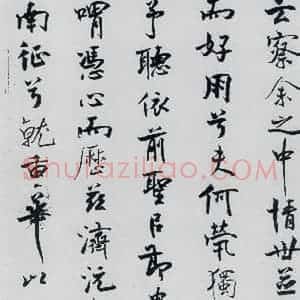 云察余之中情世並
而好朋兮夫何煢獨
予聽依前聖㠯節中
喟憑心而歷茲濟沅
南征兮就重華以
Shufaziliao.com